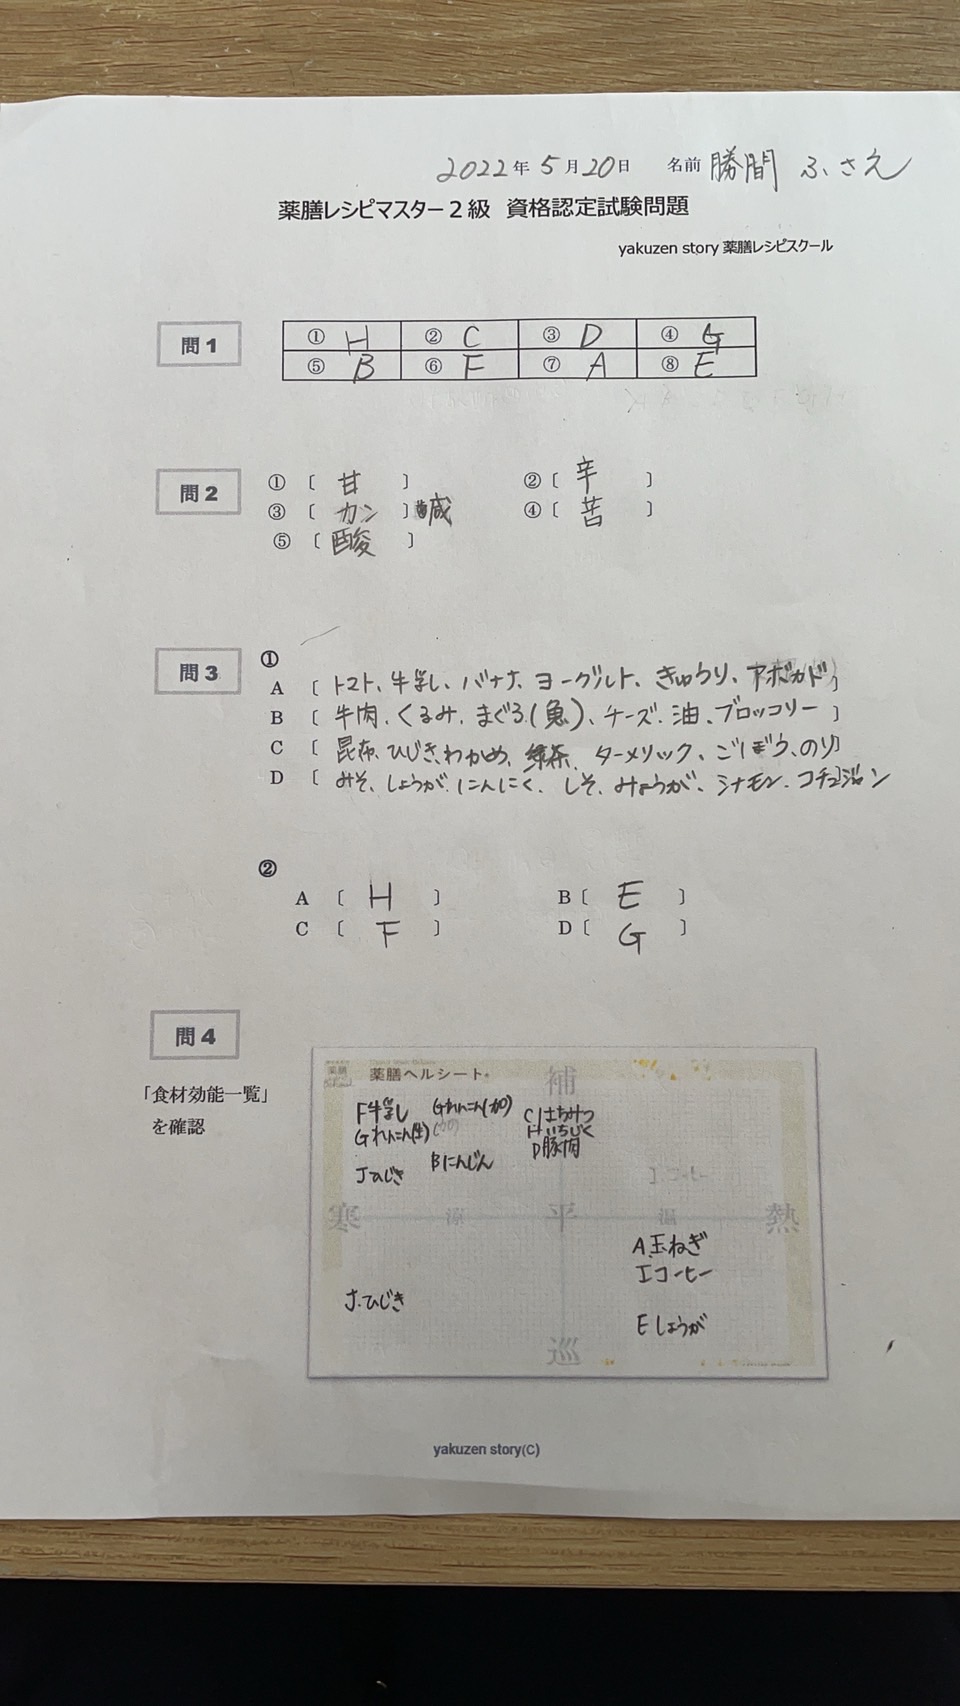 2022年5月20日 名前 勝間 ふさえ
薬膳レシピマスター２級 資格認定試験問題
yakuzen story 薬膳レシピスクール
問1
① H ② C ③ D ④ G
⑤ B ⑥ F ⑦ A ⑧ E
問2
①〔 甘 〕 ②〔 辛 〕
③〔 カン 〕鹹 ④〔 苦 〕
⑤〔 酸 〕
問3
①
A〔 トマト、牛乳、バナナ、ヨーグルト、きゅうり、アボカド〕
B〔 牛肉、くるみ、まぐろ(魚)、チーズ、油、ブロッコリー 〕
C〔 昆布、ひじき、わかめ、緑茶、ターメリック、ごぼう、のり〕
D〔 みそ、しょうが、にんにく、しそ、みょうが、シナモン、コチュジャン
②
A〔 H 〕 B〔 E 〕
C〔 F 〕 D〔 G 〕
問4
「食材効能一覧」
を確認
薬膳
薬膳ヘルシート
補
F牛乳 Gれんこん(加) Cはちみつ
Gれんこん(生) Hいちじく
D豚肉
Jひじき Bにんじん
I.コーヒー
寒 涼 平 温 熱
A.玉ねぎ
Iコーヒー
J.ひじき
Eしょうが
巡
yakuzen story(C)